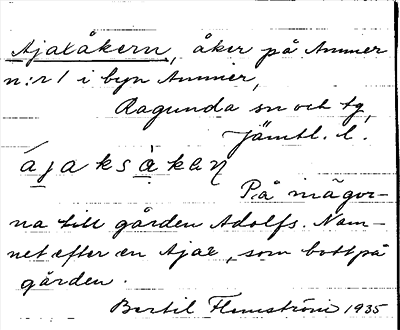 Ajaxåkern, åker på Ammer
n:r 1 i byn Ammer,
Ragunda sn och tg,
Jämtl. l.
ájaksàkaɳ
På mägor-
na till gården Adolfs. Nam-
net efter en Ajax, som bott på
gården.
Bertil Flemström 1935